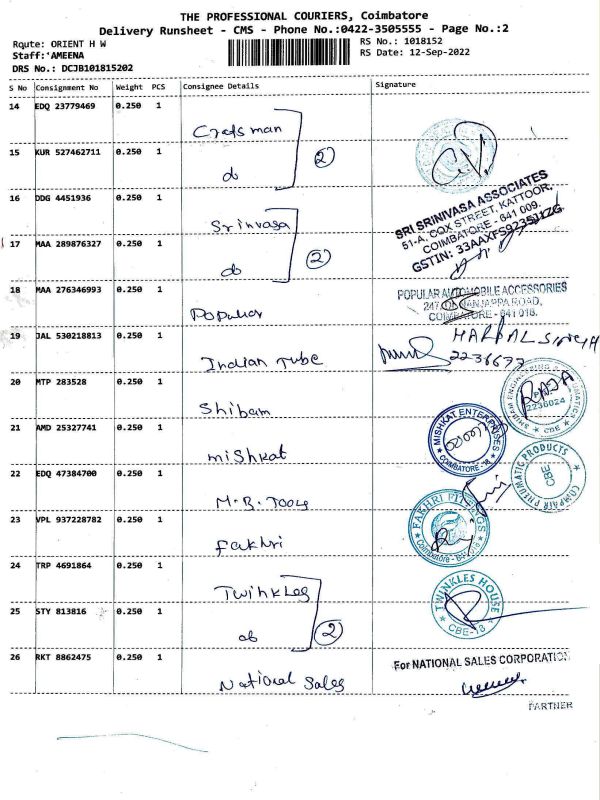 THE PROFESSIONAL COURIERS, Coimbatore
Delivery Runsheet - CMS - Phone No.:0422-3505555 - Page No.:2
Route: ORIENT H W
RS No.: 1018152
Staff: AMEENA
RS Date: 12-Sep-2022
DRS No.: DCJB101815202
S No Consignment No Weight PCS Consignee Details Signature
14 EDQ 23779469 0.250 1
Craftsman
15 KUR 527462711 0.250 1
do
2
16 DDG 4451936 0.250 1
Srinivasa
17 MAA 289876327 0.250 1
do
2
SRI SRINIVASA ASSOCIATES
51-A, COX STREET, KATTOOR,
COIMBATORE - 641 009.
GSTIN: 33AAXFS9235H1ZG
18 MAA 276346993 0.250 1
Popular
POPULAR AUTOMOBILE ACCESSORIES
247, NANJAPPA ROAD,
COIMBATORE - 641 018.
19 JAL 530218813 0.250 1
Indian Tube
HARPAL SINGH
2236677
20 MTP 283528 0.250 1
Shibam
RAJA
SHIBAM ENGINEERING & PNEUMATICS
2236024
CBE
21 AMD 25327741 0.250 1
Mishkat
MISHKAT ENTERPRISES
COIMBATORE - 18
22 EDQ 47384700 0.250 1
M.B. Tools
COMPAIR PNEUMATIC PRODUCTS
CBE
23 VPL 937228782 0.250 1
Fakhri
FAKHRI FITTINGS
Coimbatore
24 TRP 4691864 0.250 1
Twinkles
25 STY 813816 0.250 1
do
2
TWINKLES HOUSE
CBE-18
26 RKT 8862475 0.250 1
National Sales
For NATIONAL SALES CORPORATION
PARTNER